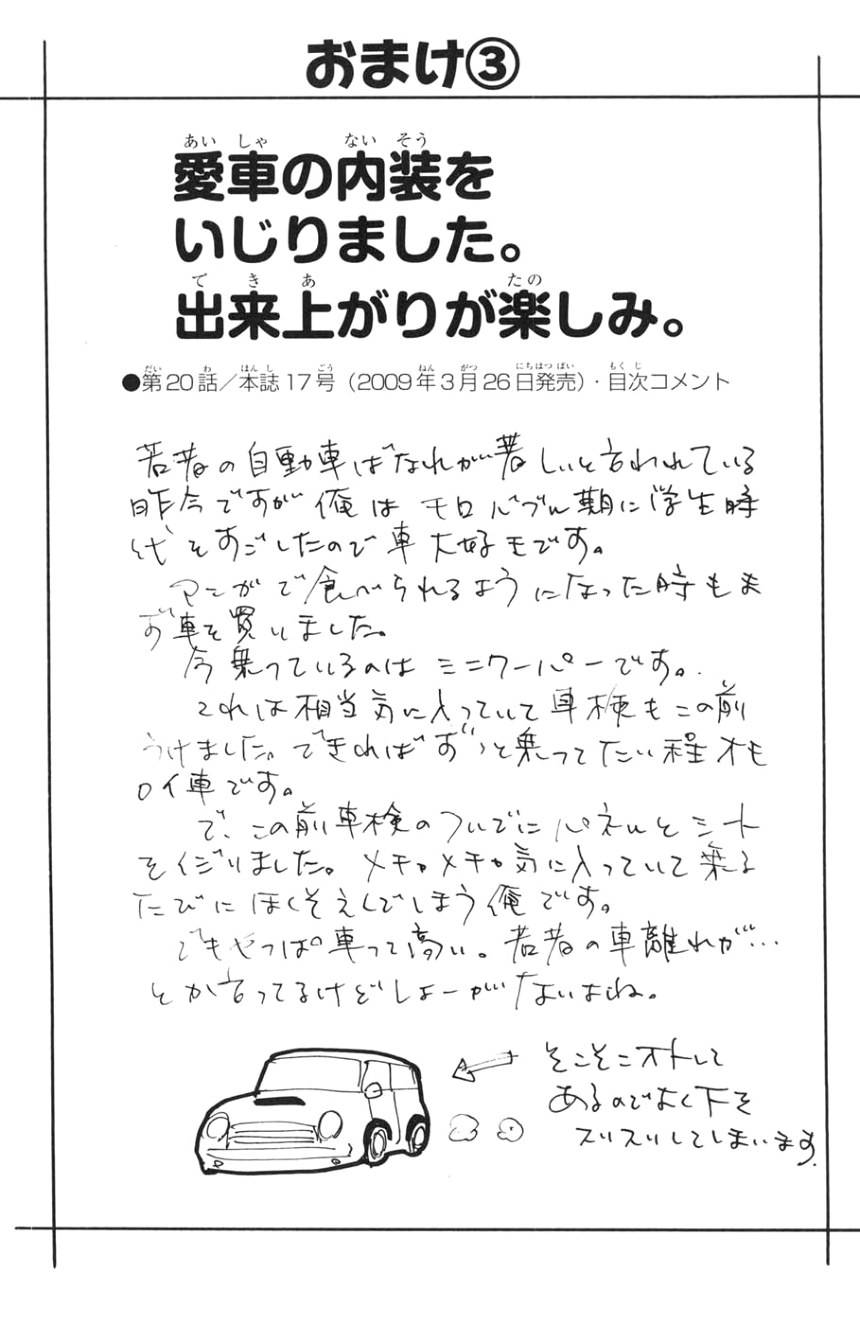 おまけ③
愛車の内装を
いじりました。
出来上がりが楽しみ。
●第20話／本誌17号（2009年3月26日発売）・目次コメント
若者の自動車ばなれが著しいと言われている
昨今ですが俺はモロバブル期に学生時
代をすごしたので車大好きです。
マンガで食べられるようになった時もま
ず車を買いました。
今乗っているのはミニクーパーです。
これは相当気に入っていて車検もこの前
うけました。できればずっと乗ってたい程オモ
ロイ車です。
で、この前車検のついでにパネルとシート
をイジりました。メチャメチャ気に入っていて乗る
たびにほくそえんでしまう俺です。
でもやっぱ車って高い。若者の車離れが…
とか言ってるけどしょーがないよね。
そこそこオトして
あるのでよく下を
スリスリしてしまいます。